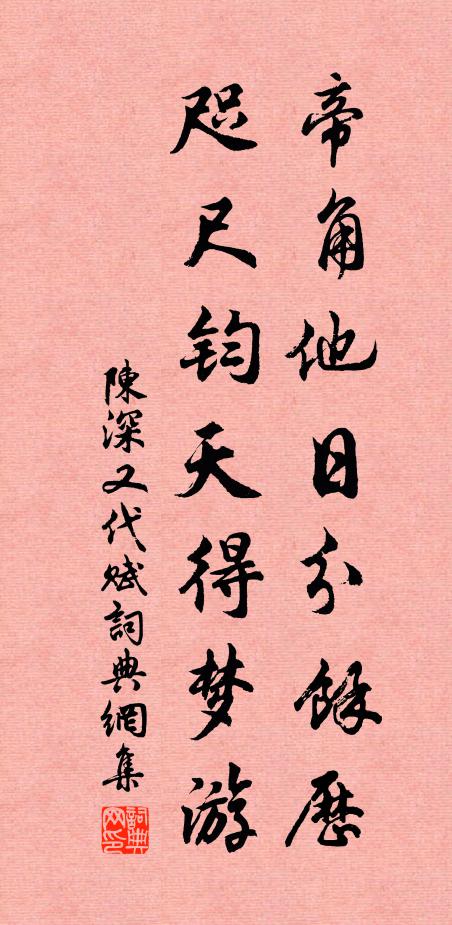 帝角他日分餘歷
咫尺钧天得梦游
陳深又代赋詞典網集
詞典网印